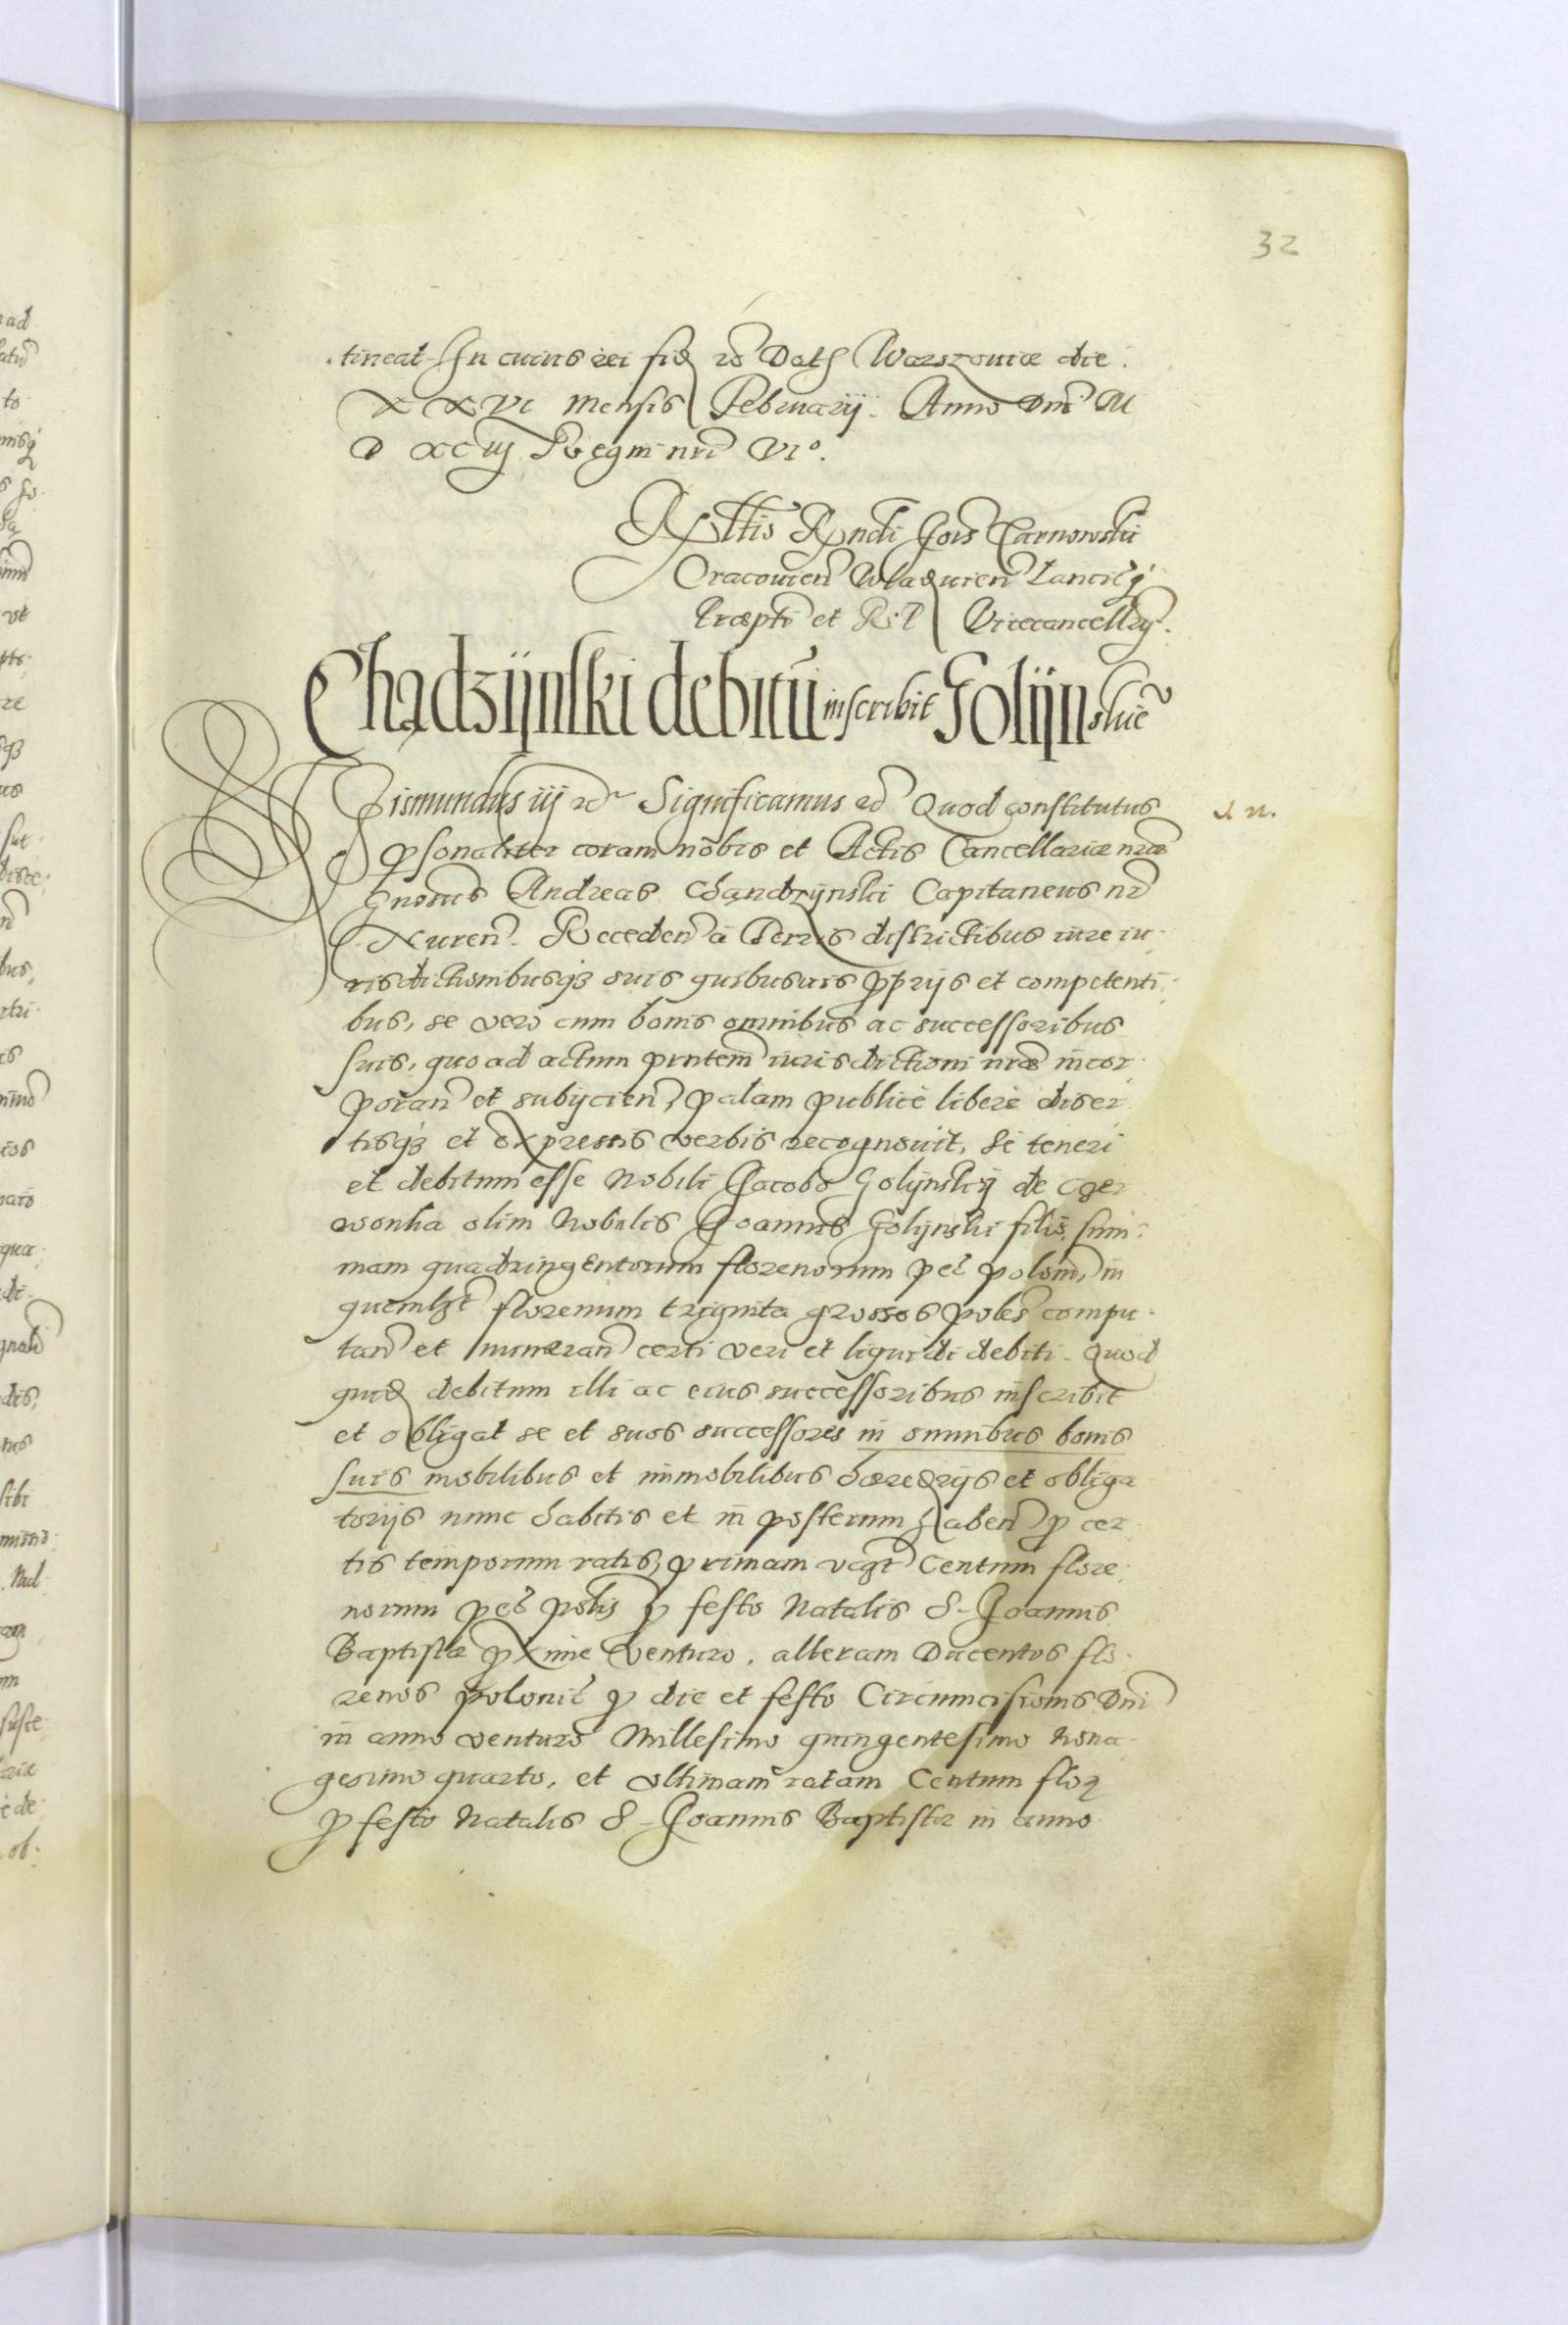 32
tineat In cuius rei fid rc Dat Warszouiæ die
XXVI Mensis Februarij. Anno Dni M
D XCiij Regni nri VIo.
Rltio Rndi Jois Tarnowski
Cracouien Wladislauien Lancicq
Præpti et R. P Vicecancellrij.
Chądzijnski debitu inscribit Golijnskie
Sigismundus iij rc Significamus rc Quod constitutus
psonaliter coram nobis et Actis Cancellariæ nræ
Gnosus Andreas Chandzijnski Capitaneus nr
Nuren. Receden à Terris districtibus iure iu
risdictionibusq3 suis quibusuis pprijs et competenti
bus, se vero cum bonis omnibus ac successoribus
suis, quo ad actum pntem iurisdictioni nræ incor
poran et subijcien, palam publicè liberè diser
tisq3 et expressis verbis recognouit, se teneri
et debitum esse Nobili Jacobo Golijnskij de Czer
wonka olim Nobilis Joannis Golijnski filio, sum
mam quadringentorum florenorum pec polon, in
quemlzt florenum triginta grossos poles compu
tan et numeran certi veri et liquidi debiti. Quod
quid debitum illi ac eius successoribus inscribit
et obligat se et suos successores in omnibus bonis
suis mobilibus et immobilibus hæredrijs et obliga
torijs nunc habitis et in posterum haben p cer
tis temporum ratis, primam vigt Centum flore
norum pec polis p festo Natalis S. Joannis
Baptistæ pxime venturo, alteram Ducentos flo
renos polonic p die et festo Circumcisionis Dni
in anno venturo Millesimo quingentesimo Nona
gesimo quarto, et vltimam ratam Centum flor
p festo Natalis S. Joannis Baptistæ in anno